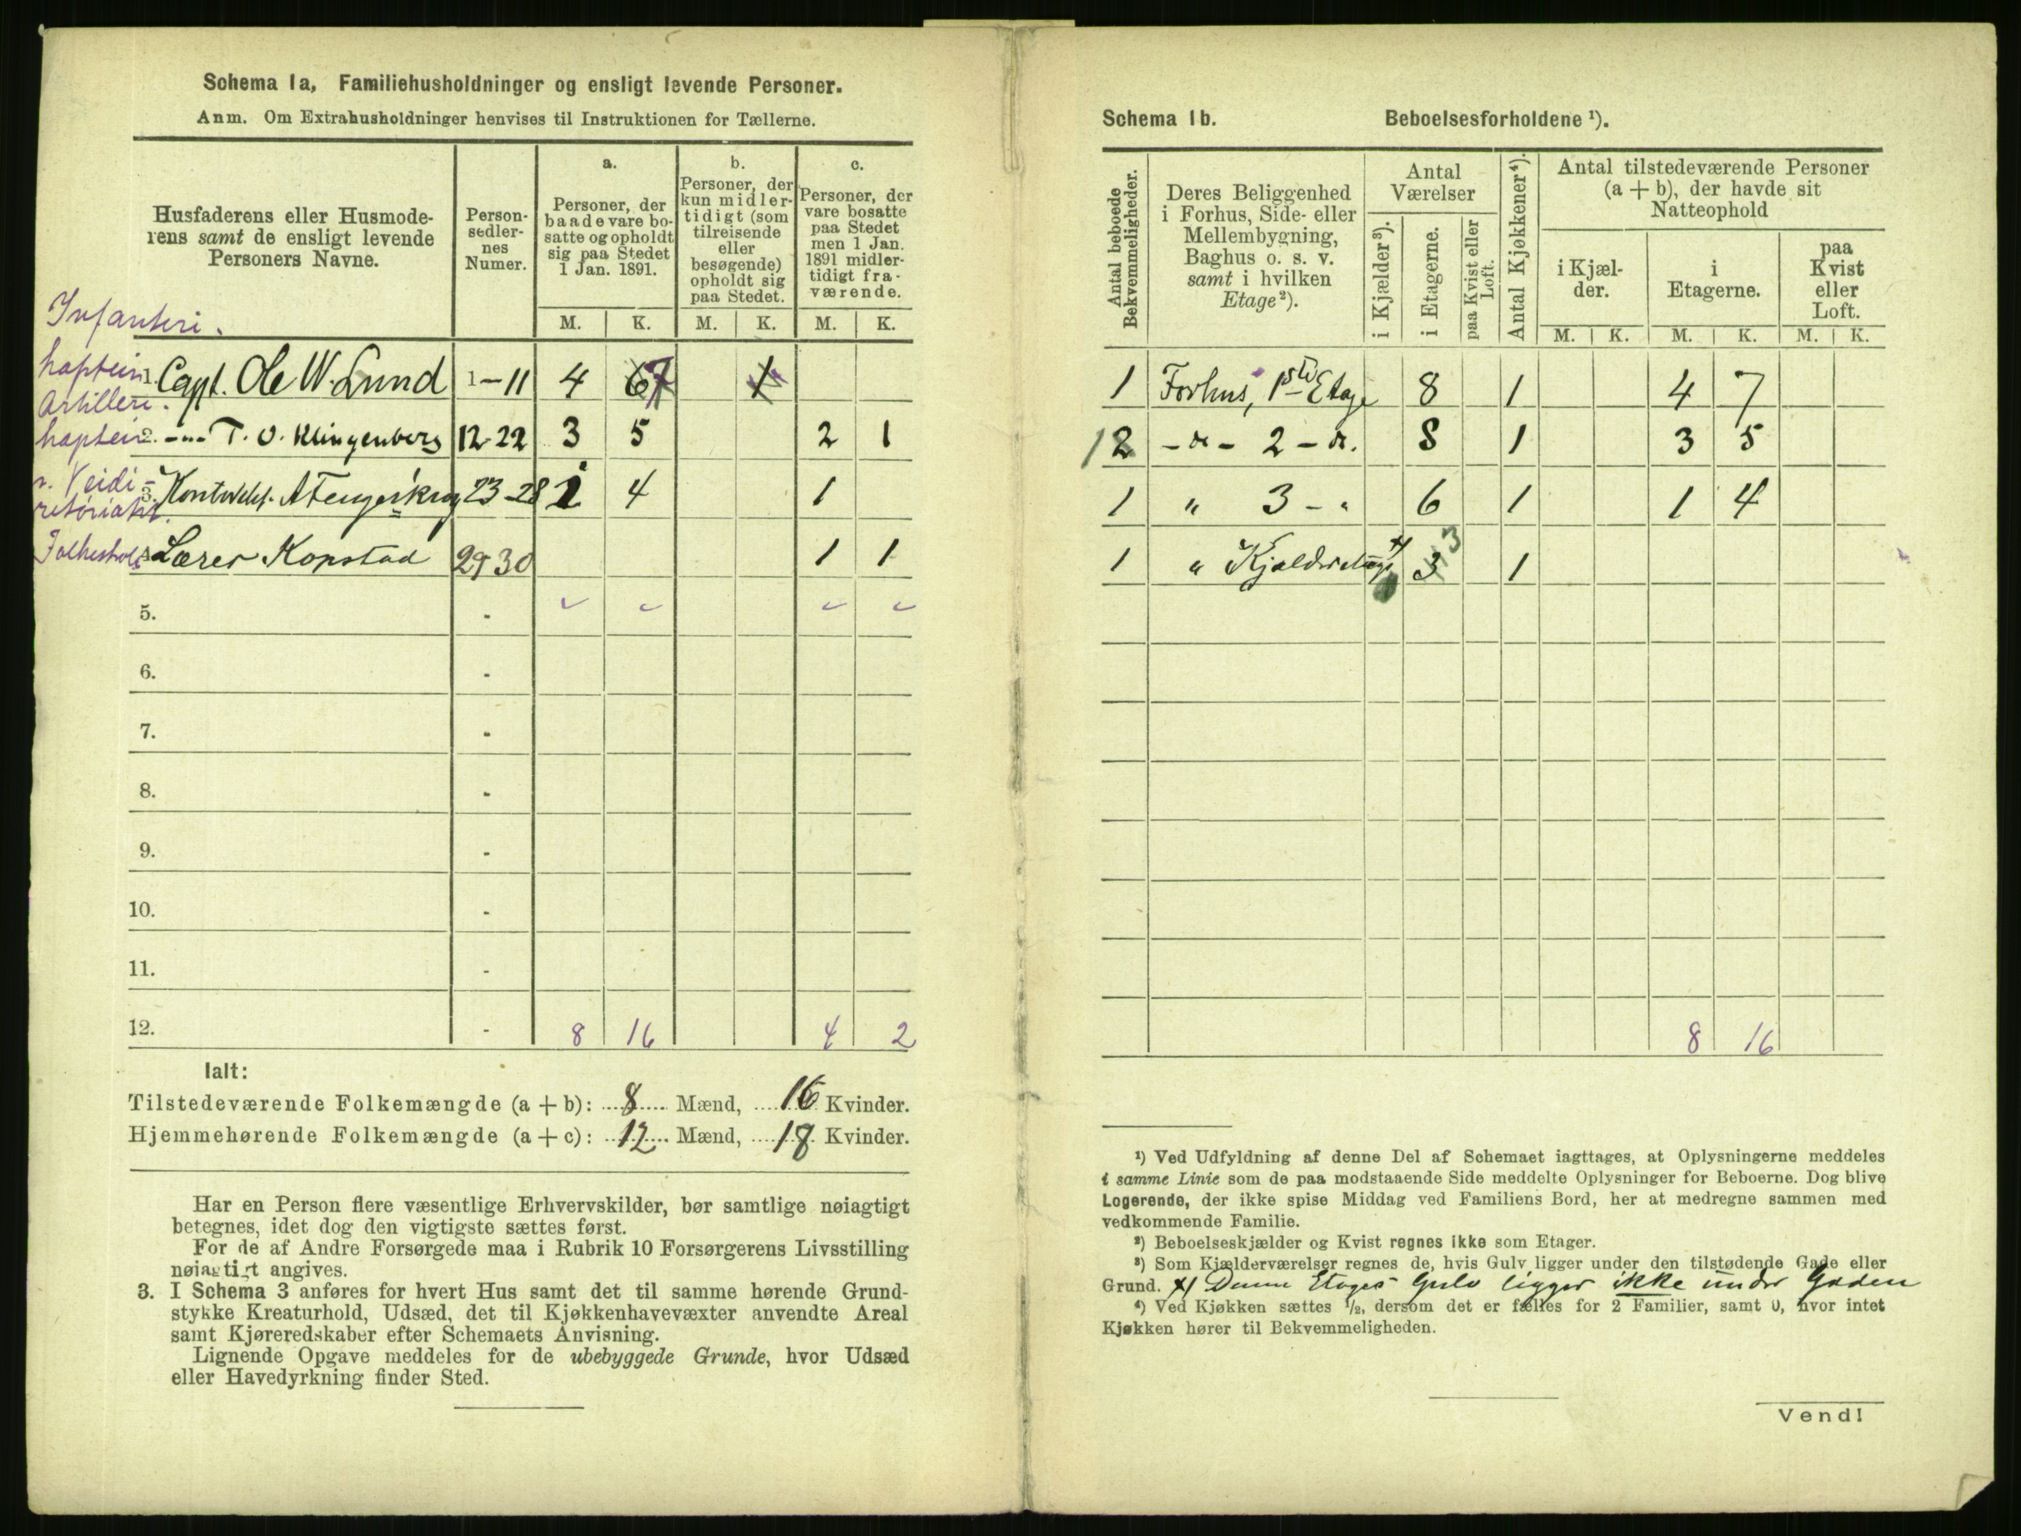 Schema 1a, Familiehusholdninger og ensligt levende Personer.
Anm. Om Extrahusholdninger henvises til Instruktionen for Tællerne.
Husfaderens eller Husmode-
rens samt de ensligt levende
Personers Navne.
Person-
sedler-
nes
Numer.
a.
Personer, der
baade vare bo-
satte og opholdt
sig paa Stedet
1 Jan. 1891.
b.
Personer, der
kun midler-
tidigt (som
tilreisende
eller
besøgende)
opholdt sig
paa Stedet.
c.
Personer, der
vare bosatte
paa Stedet
men 1 Jan.
1891 midler-
tidigt fra-
værende.
M. K. M. K. M. K.
Infanteri.
kaptein
1. Capt. Ole W. Lund 1-11 4 7 1
Artilleri.
kaptein 2. -"- T. O. Klingenberg 12-22 3 5 2 1
3. A Fenger Krog 23-28 1 4 1
Lærer Kopstad 29 30 1 1
5. -
6. -
7. -
8. -
9. -
10. -
11. -
12. - 8 16 4 2
Ialt:
Tilstedeværende Folkemængde (a + b): 8 Mænd, 16 Kvinder.
Hjemmehørende Folkemængde (a + c): 12 Mænd, 18 Kvinder.
Har en Person flere væsentlige Erhvervskilder, bør samtlige nøiagtigt
betegnes, idet dog den vigtigste sættes først.
For de af Andre Forsørgede maa i Rubrik 10 Forsørgerens Livsstilling
nøiagtigt angives.
3. I Schema 3 anføres for hvert Hus samt det til samme hørende Grund-
stykke Kreaturhold, Udsæd, det til Kjøkkenhavevæxter anvendte Areal
samt Kjøreredskaber efter Schemaets Anvisning.
Lignende Opgave meddeles for de ubebyggede Grunde, hvor Udsæd
eller Havedyrkning finder Sted.
Schema 1b. Beboelsesforholdene ¹).
Antal beboede
Bekvemmeligheder.
Deres Beliggenhed
i Forhus, Side- eller
Mellembygning,
Baghus o. s. v.
samt i hvilken
Etage²).
Antal
Værelser
i Kjælder³).
i Etagerne.
paa Kvist eller
Loft.
Antal Kjøkkener⁴).
Antal tilstedeværende Personer
(a + b), der havde sit
Natteophold
i Kjæl-
der.
i
Etagerne.
paa
Kvist
eller
Loft.
M. K. M. K. M. K.
1 Forhus, 1ste Etage 8 1 4 7
1 2 -do- 2 - do. 8 1 3 5
1 " 3 - " 6 1 1 4
1 " Kjælderetage x) 3 3 1
8 16
¹) Ved Udfyldning af denne Del af Schemaet iagttages, at Oplysningerne meddeles
i samme Linie som de paa modstaaende Side meddelte Oplysninger for Beboerne. Dog blive
Logerende, der ikke spise Middag ved Familiens Bord, her at medregne sammen med
vedkommende Familie.
²) Beboelseskjælder og Kvist regnes ikke som Etager.
³) Som Kjælderværelser regnes de, hvis Gulv ligger under den tilstødende Gade eller
Grund. x) Denne Etages Gulv ligger ikke under Gaden
⁴) Ved Kjøkken sættes ½, dersom det er fælles for 2 Familier, samt 0, hvor intet
Kjøkken hører til Bekvemmeligheden.
Vend!